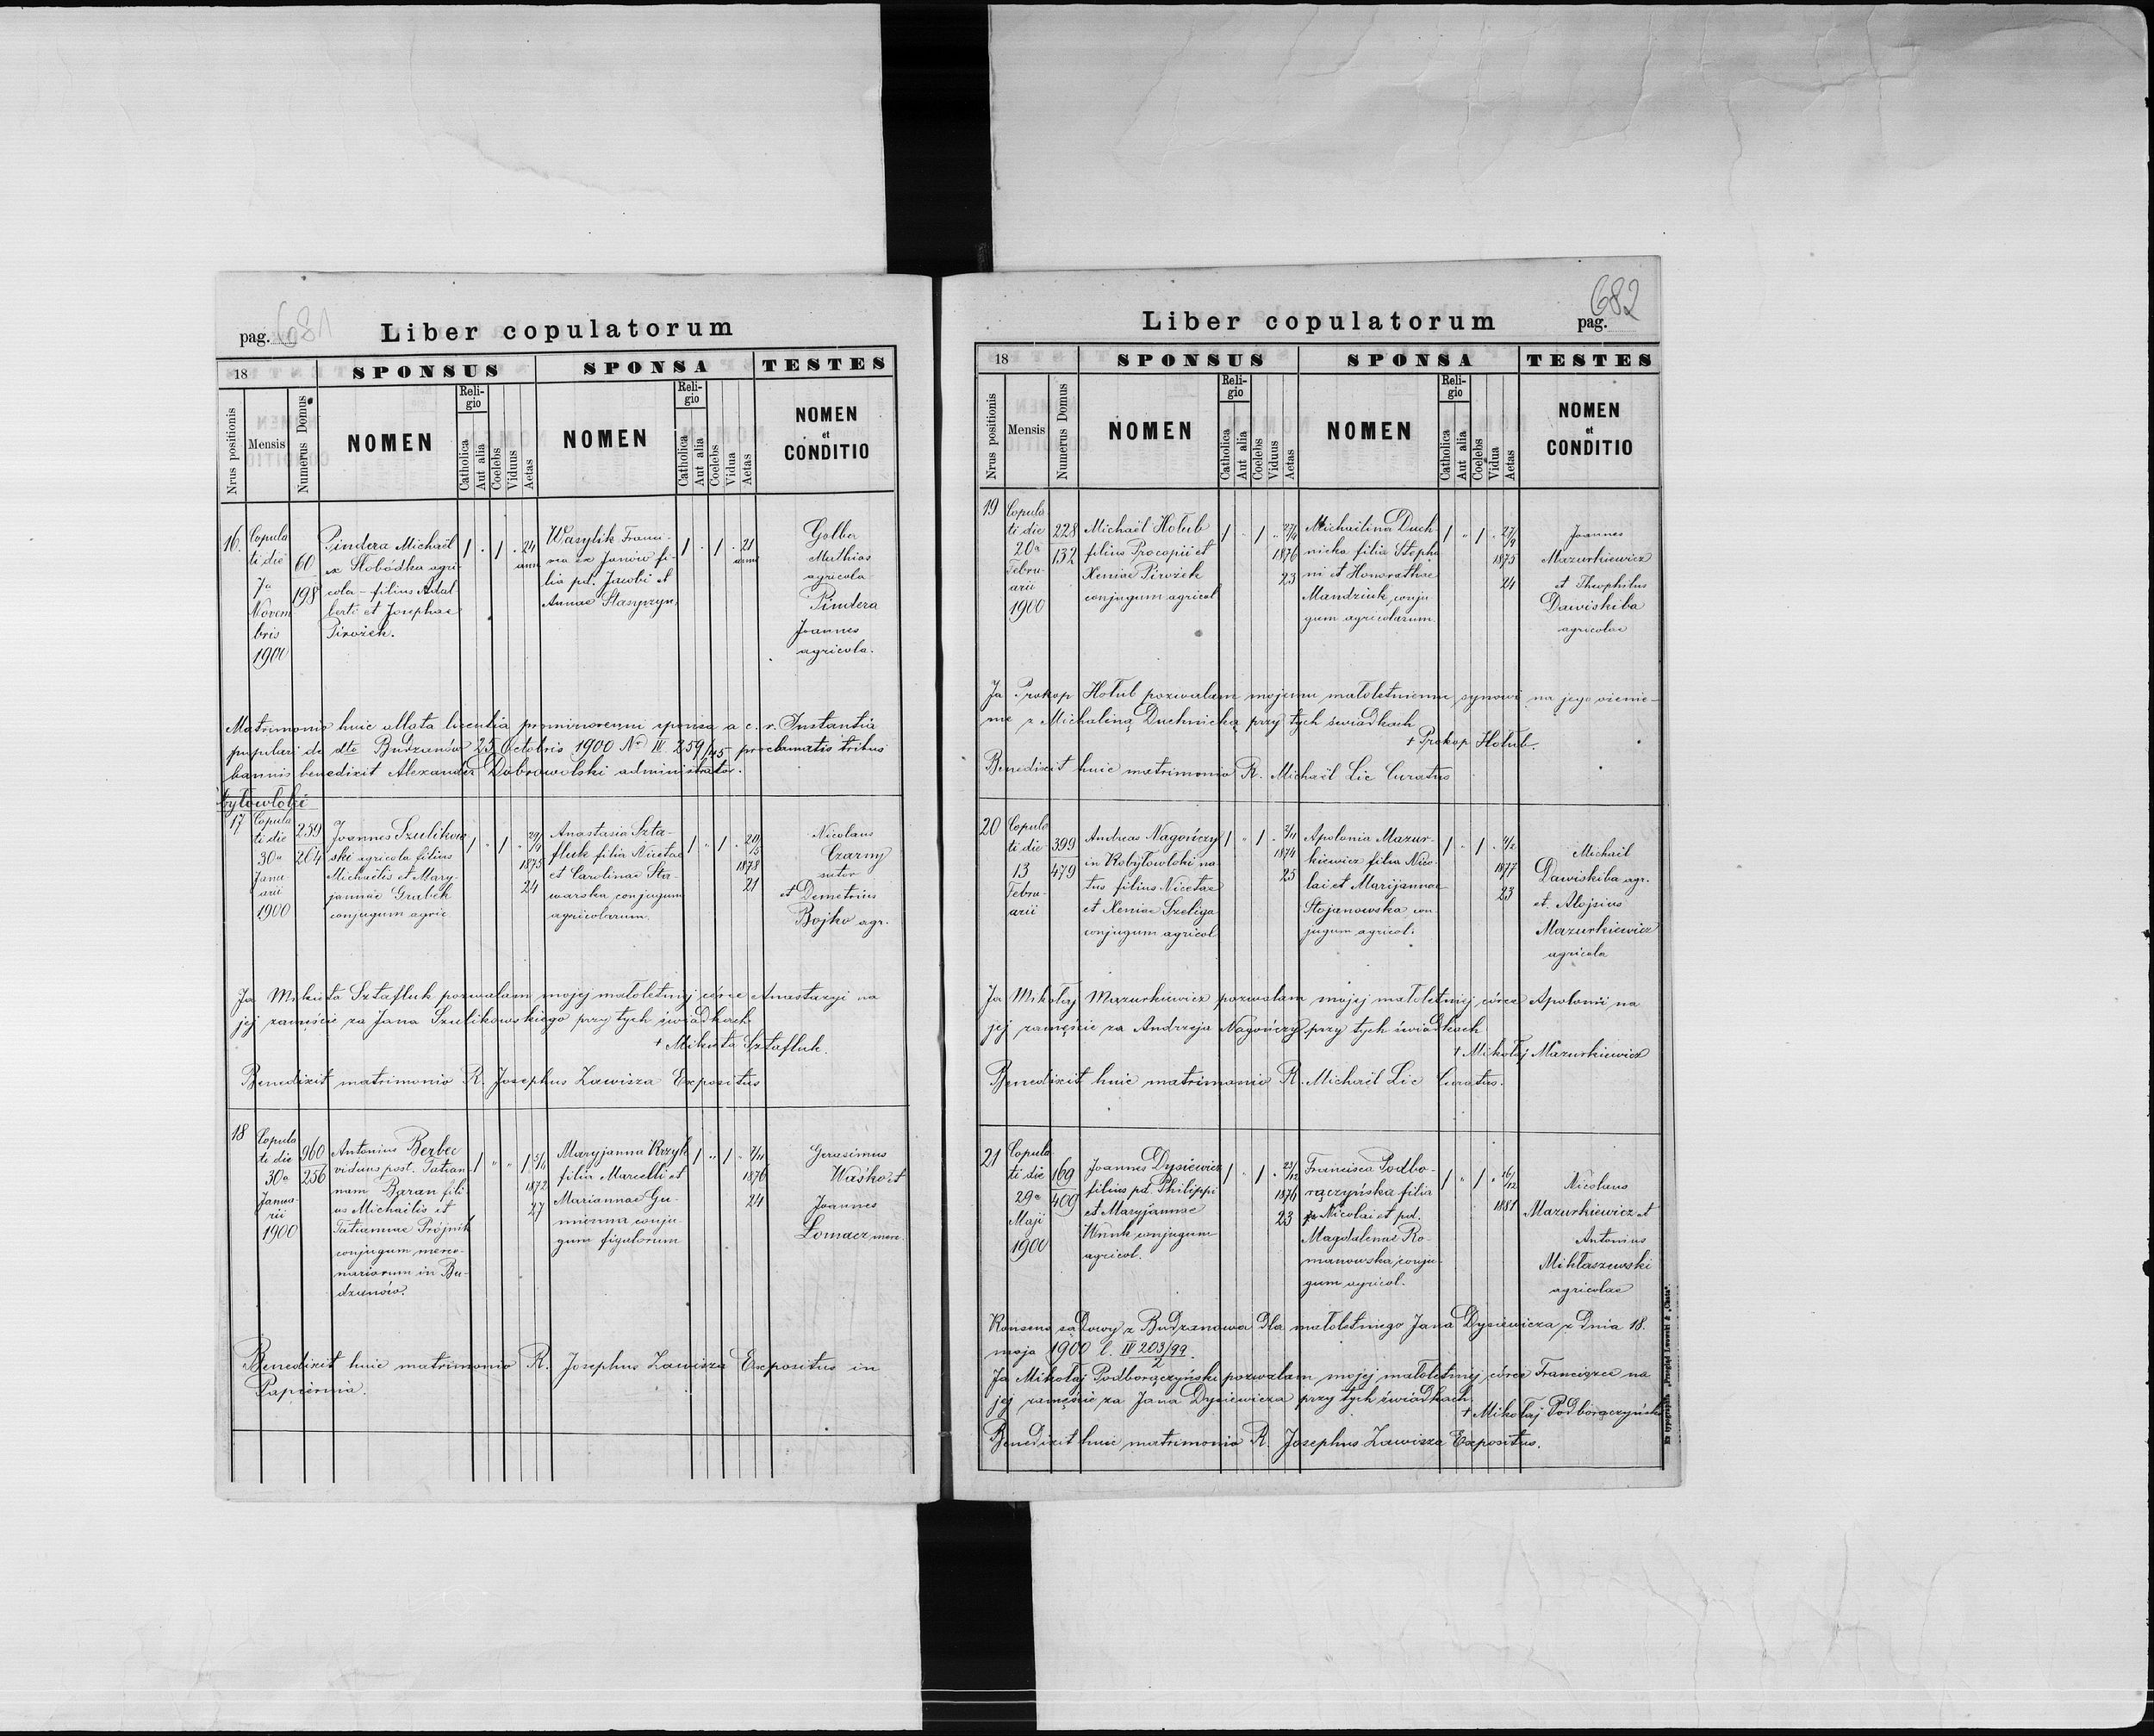 pag. 681
Liber copulatorum
18
SPONSUS
SPONSA
TESTES
Nrus positionis
Mensis
Numerus Domus
NOMEN
Religio
Catholica
Aut alia
Coelebs
Viduus
Aetas
NOMEN
Religio
Catholica
Aut alia
Coelebs
Vidua
Aetas
NOMEN
et
CONDITIO
16.
Copula
ti die
7a
Novem
bris
1900
60
198
Pindera Michaël
ex Słobódka agri
cola – filius Adal
berti et Josephae
Pirożek.
1 . 1 . 24
ann
Wasylik Franci-
sca ex Janów fi-
lia pd. Jacobi et
Annae Stasyszyn
1 . 1 . 21
anni
Golber
Mathias
agricola
Pindera
Joannes
agricola.
Matrimonio huic allata licentia prominorenni sponsa a c. r. Instantia
pupilari de dto Budzanów 25 Octobris 1900 No IV 259/45 proclamatis tribus
bannis benedixit Alexander Dobrowolski administrator.
17
Copula
ti die
30a
Janu
arii
1900
259
264
Joannes Szulikow
ski agricola filius
Michaëlis et Mary-
jannae Grabek
conjugum agric
1 " 1 "
1875
24
Anastasia Szta-
fluk filia Nicetae
et Carolinae Sta-
warska conjugum
agricolarum.
1 " 1 "
1878
21
Nicolaus
Czarny
sutor
et Demetrius
Bojko agr.
Ja Mikieta Sztafluk pozwalam mojej małoletniej córce Anastazyi na
jej zamęście za Jana Szulikowskiego przy tych świadkach
+ Mikieta Sztafluk.
Benedixit matrimonio R. Josephus Zawisza Expositus
18
Copula
ti die
30a
Janua
rii
1900
960
256
Antonius Berbec
viduus post. Tatian
nam Baran fili
us Michaëlis et
Tatiannae Prójnik
conjugum merce-
nariorum in Bu-
dzanów.
1 " " 1
1872
27
Maryjanna Krzyk
filia Marcelli et
Mariannae Gu-
mienna conju
gum figulorum
1 " 1 "
1876
24
Gerasimus
Waśko et
Joannes
Łomacz merc.
Benedixit huic matrimonio R. Josephus Zawisza Expositus in
Papiernia.
682
pag.
Liber copulatorum
18
SPONSUS
SPONSA
TESTES
Nrus positionis
Mensis
Numerus Domus
NOMEN
Religio
Catholica
Aut alia
Coelebs
Viduus
Aetas
NOMEN
Religio
Catholica
Aut alia
Coelebs
Vidua
Aetas
NOMEN
et
CONDITIO
19
Copula
ti die
20a
Febru-
arii
1900
228
132
Michaël Hołub
filius Procopii et
Xeniae Pirożek
conjugum agricol
1 " 1 "
1876
23
Michailina Duch
nicka filia Stepha
ni et Honorathae
Mandziuk conju
gum agricolarum.
1 " 1 " 27/9
1875
24
Joannes
Mazurkiewicz
et Theophilus
Dawiskiba
agricolae
Ja Prokop Hołub pozwalam mojemu małoletniemu synowi na jego ożenie-
nie z Michaliną Duchnicką przy tych świadkach
+ Prokop Hołub.
Benedixit huic matrimonio R. Michaël Lic Curatus
20
Copula
ti die
13
Febru-
arii
399
479
Andreas Nagończy
in Kobyłowłoki na
tus filius Nicetae
et Xeniae Szeliga
conjugum agricol
1 " 1 "
1874
25
Apolonia Mazur-
kiewicz filia Nico-
lai et Marijannae
Stojanowska con
jugum agricol.
1 " 1 "
1877
23
Michaël
Dawiskiba agr.
et Alojsius
Mazurkiewicz
agricola
Ja Mikołaj Mazurkiewicz pozwalam mojej małoletniej córce Apolonii na
jej zamęście za Andrzeja Nagończy przy tych świadkach
+ Mikołaj Mazurkiewicz
Benedixit huic matrimonio R. Michaël Lic Curatus.
21
Copula
ti die
29a
Maji
1900
169
409
Joannes Dysiewicz
filius pd. Philippi
et Maryjannae
Wnuk conjugum
agricol.
1 " 1 " 23/12
1876
23
Francisca Podbo-
rączyńska filia
Nicolai et pd.
Magdalenae Ro-
manowska conju-
gum agricol.
1 " 1 " 16/12
1881
Nicolaus
Mazurkiewicz et
Antonius
Mikłaszewski
agricolae
Konsens sądowy z Budzanowa dla małoletniego Jana Dysiewicza z dnia 18.
maja 1900 l. IV 203/99
2
Ja Mikołaj Podborączyński pozwalam mojej małoletniej córce Franciszce na
jej zamęście za Jana Dysiewicza przy tych świadkach
+ Mikołaj Podborączyński
Benedixit huic matrimonio R. Josephus Zawisza Expositus.